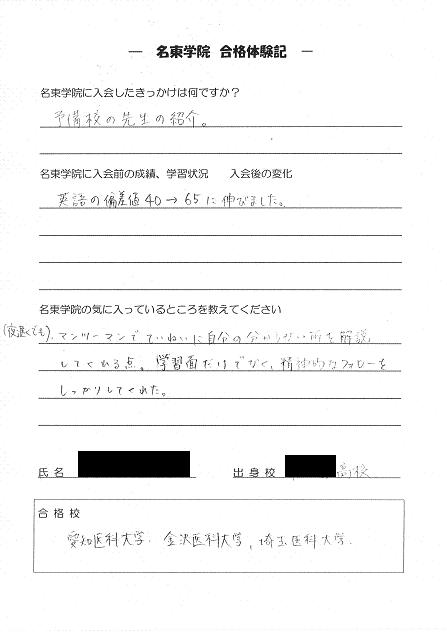 ― 名東学院 合格体験記 ―
名東学院に入会したきっかけは何ですか？
予備校の先生の紹介。
名東学院に入会前の成績、学習状況 入会後の変化
英語の偏差値40→65に伸びました。
名東学院の気に入っているところを教えてください
(夜遅くでも)、マンツーマンでていねいに自分の分からない所を解説
してくれる点。学習面だけでなく、精神的なフォローを
しっかりしてくれた。
氏名 出身校 高校
合格校
愛知医科大学、金沢医科大学、埼玉医科大学。